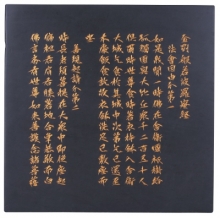 金剛般若波羅蜜經
法會因由分第一
如是我聞一時佛在舍衛國祇樹給
孤獨園與大比丘眾千二百五十人
俱爾時世尊食時著衣持鉢入舍衛
大城乞食於其城中次第乞已還至
本處飯食訖收衣鉢洗足已敷座而
坐
善現啟請分第二
時長老須菩提在大眾中即從座起
偏袒右肩右膝著地合掌恭敬而白
佛言希有世尊如來善護念諸菩薩